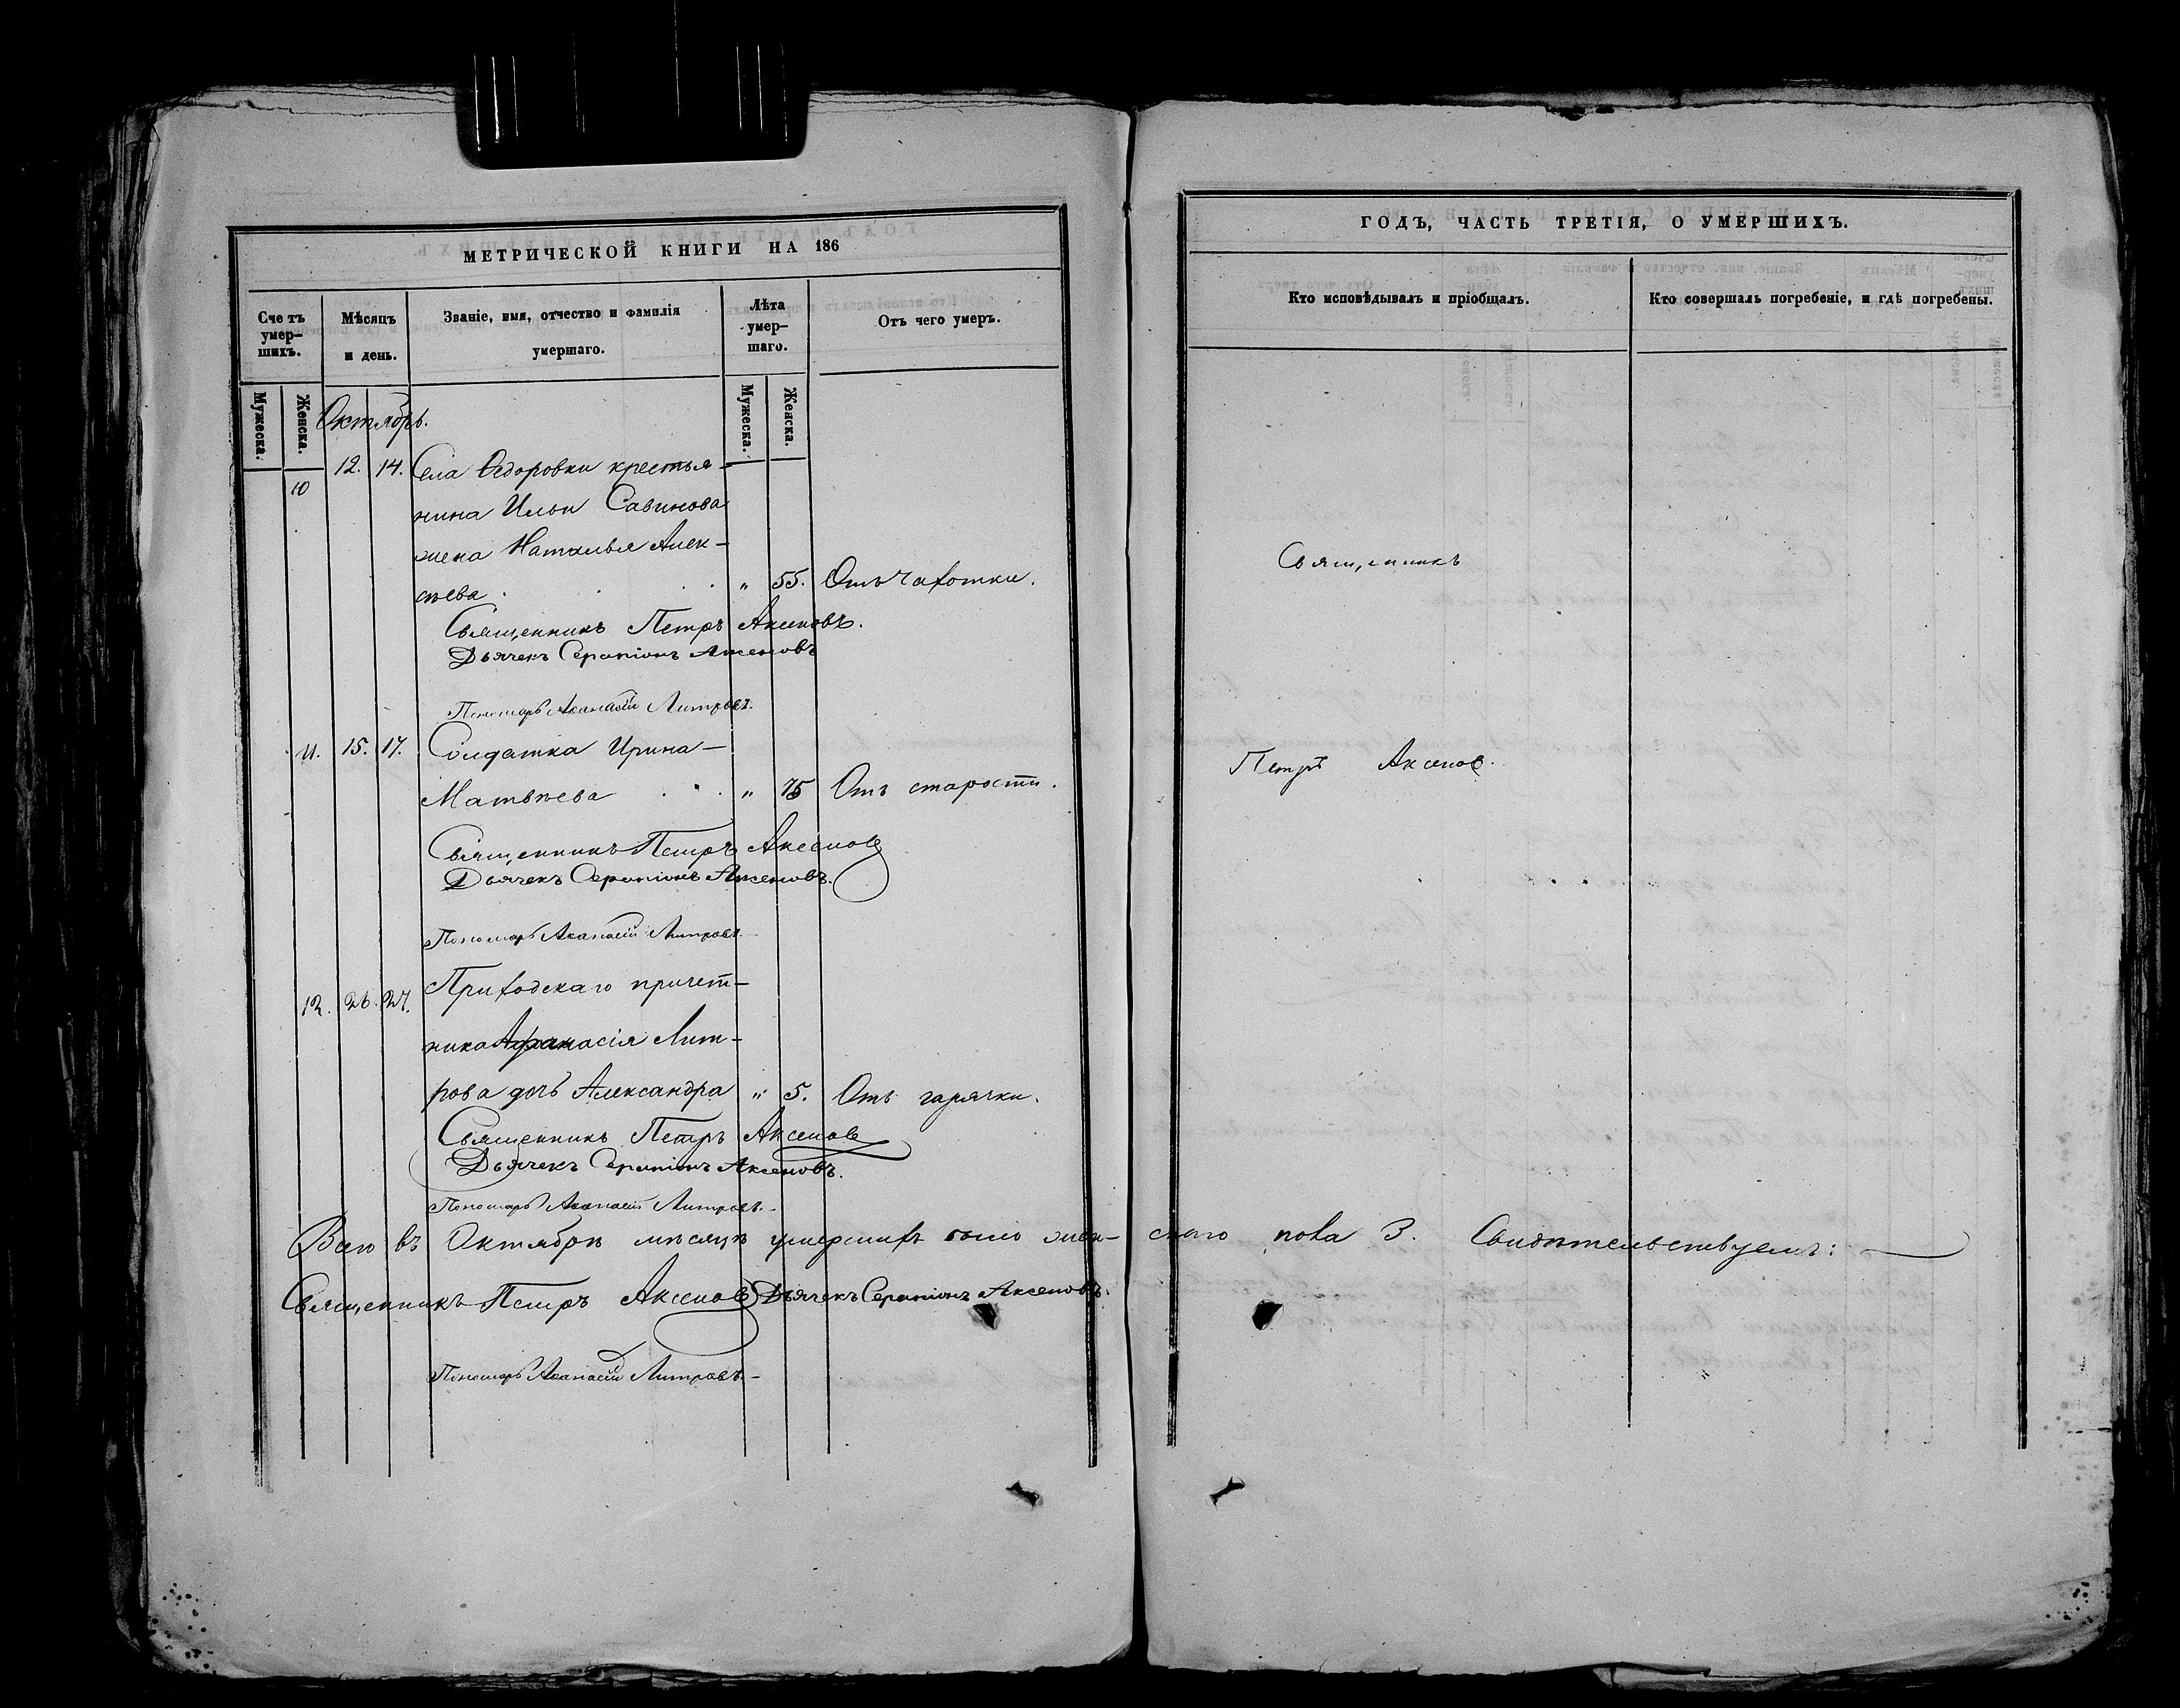 МЕТРИЧЕСКОЙ КНИГИ НА 186
Сче тъ умер-шихъ.
Мѣсяцъ и день.
Званіе, имя, отчество и фамилія умершаго.
Лѣта умер-шаго.
Отъ чего умеръ.
Мужеска.
Женска.
Мужеска.
Женска.
Октябрь.
10 12. 14. Села Ѳедоровки крестья-
нина Ильи Савинова
жена Наталья Алек-
сѣева . . „ 55. Отъ чахотки.
Священникъ Петръ Аксеновъ.
Дьячекъ Серапіонъ Аксеновъ
Пономарь Аѳанасій Литровъ.
11. 15. 17. Солдатка Ирина
Матвѣева . . . „ 75 Отъ старости.
Священникъ Петръ Аксенов
Дьячекъ Серапіонъ Аксеновъ.
Пономарь Аѳанасій Литровъ.
12. 26. 27. Приходскаго причет-
ника Афанасія Лит-
рова дочь Александра „ 5. Отъ горячки.
Священникъ Петръ Аксенов
Дьячекъ Серапіонъ Аксеновъ.
Пономарь Аѳанасій Литровъ.
Всего въ Октябрѣ мѣсяцѣ умершихъ было жен-скаго пола 3. Свидѣтельствуемъ:
Священникъ Петръ Аксенов Дьячекъ Серапіонъ Аксеновъ.
Пономарь Аѳанасій Литровъ.
ГОДЪ, ЧАСТЬ ТРЕТІЯ, О УМЕРШИХЪ.
Кто исповѣдывалъ и пріобщалъ.
Кто совершалъ погребеніе, и гдѣ погребены.
Священникъ
Петръ Аксенов.